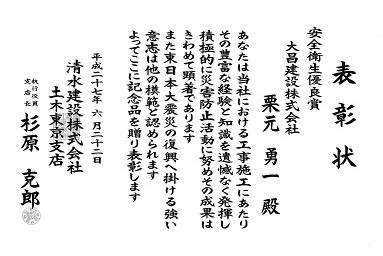 表彰状
安全衛生優良賞
大昌建設株式会社
栗元 勇一 殿
あなたは当社における工事施工にあたり
その豊富な経験と知識を遺憾なく発揮し
積極的に災害防止活動に努めその成果は
きわめて顕著であります
また東日本大震災の復興へ掛ける強い
意志は他の模範と認められます
よってここに記念品を贈り表彰します
平成二十七年 六月二十二日
清水建設株式会社
土木東京支店
執行役員
支店長
杉原 克郎